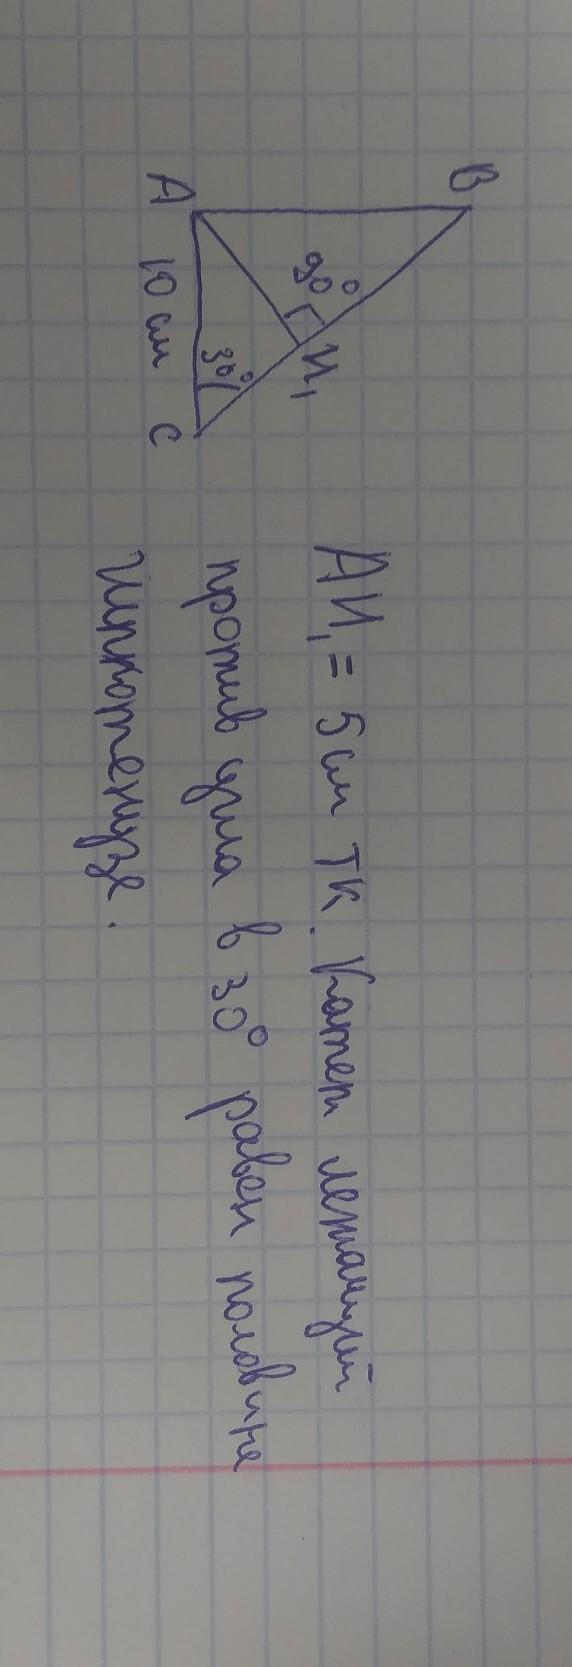 B
90°
H₁
A
30°
10 см
C
AH₁ = 5 см ТК. Катет лежащий
против угла в 30° равен половине
Гипкотенузе.